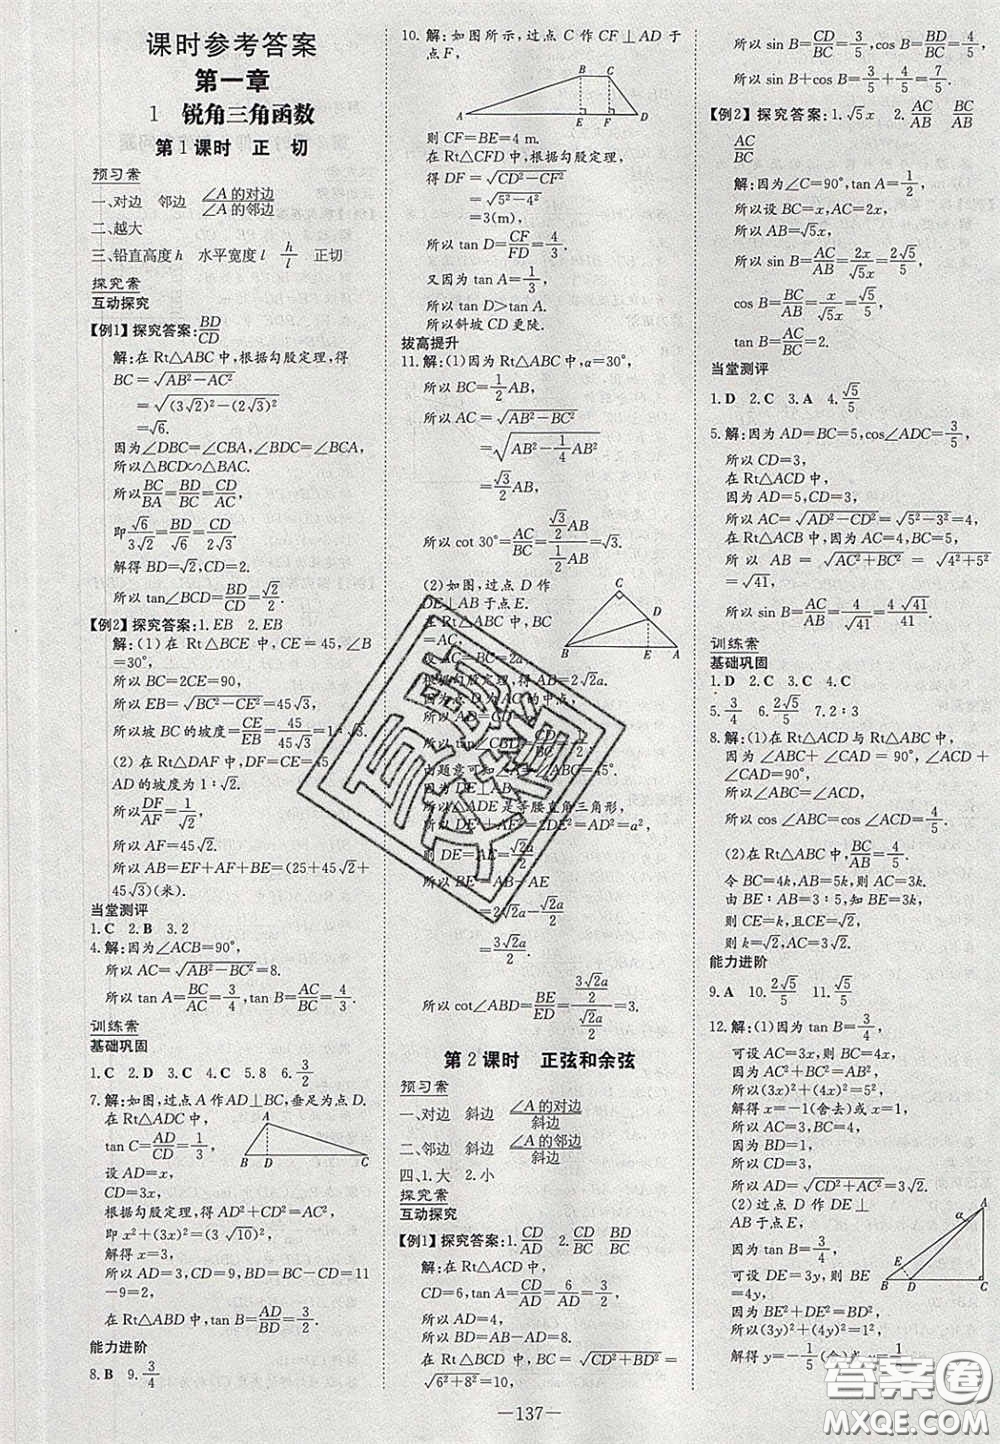 课时参考答案
第一章
1 锐角三角函数
第1课时 正 切
预习案
一、对边 邻边 ∠A的对边/∠A的邻边
二、越大
三、铅直高度h 水平宽度l h/l 正切
探究案
互动探究
【例1】探究答案:BD/CD
解:在Rt△ABC中,根据勾股定理,得
BC=√(AB²-AC²)
=√((3√2)²-(2√3)²)
=√6.
因为∠DBC=∠CBA,∠BDC=∠BCA,
所以△BCD∽△BAC.
所以BC/BA=BD/BC=CD/AC.
即√6/3√2=BD/√6=CD/2√3.
解得BD=√2,CD=2.
所以tan∠BCD=BD/CD=√2/2.
【例2】探究答案:1.EB 2.EB
解:(1)在Rt△BCE中,CE=45,∠B
=30°,
所以BC=2CE=90,
所以EB=√(BC²-CE²)=45√3.
所以坡BC的坡度=CE/EB=45/45√3=1∶√3.
(2)在Rt△DAF中,DF=CE=45,
AD的坡度为1∶√2.
所以DF/AF=1/√2.
所以AF=45√2.
所以AB=EF+AF+BE=(25+45√2+
45√3)(米).
当堂测评
1.C 2.B 3.2
4.解:因为∠ACB=90°,
所以AC=√(AB²-BC²)=8.
所以tan A=BC/AC=3/4,tan B=AC/BC=4/3.
训练案
基础巩固
1.C 2.D 3.C 4.C 5.8 6.1/3
7.解:如图,过点A作AD⊥BC,垂足为点D.
在Rt△ADC中,
tan C=AD/CD=1/3,
设AD=x,
CD=3x,
根据勾股定理,得AD²+CD²=AC²,
即x²+(3x)²=(3√10)².
解得x=3.
所以AD=3,CD=9,BD=BC-CD=11
-9=2,
在Rt△ABD中,tan B=AD/BD=3/2.
能力进阶
8.B 9.3/4
10.解:如图所示,过点C作CF⊥AD于
点F,
则CF=BE=4 m.
在Rt△CFD中,根据勾股定理,
得DF=√(CD²-CF²)
=√(5²-4²)
=3(m),
所以tan D=CF/FD=4/3.
又因为tan A=1/3,
所以tan D>tan A.
所以斜坡CD更陡.
拔高提升
11.解:(1)因为Rt△ABC中,α=30°,
所以BC=1/2AB,
所以AC=√(AB²-BC²)
=√(AB²-1/4AB²)
=√3/2AB,
所以cot 30°=AC/BC=(√3/2AB)/(1/2AB)=√3.
(2)如图,过点D作
DE⊥AB于点E.
在Rt△ABC中,BC
=AC,
设AC=BC=2a,
根据勾股定理,得AB=2√2a.
因为点D为AC的中点,
所以AD=CD=a.
所以tan∠CBD=CD/BC=
由题意可知∠A=45°.
因为DE⊥AB,
所以△ADE是等腰直角三角形,
所以DE²+AE²=2DE²=AD²=a²,
则DE=AE=√2a/2.
所以BE=AB-AE
=2√2a-√2a/2
=3√2a/2.
所以cot∠ABD=BE/ED=(3√2a/2)/(√2a/2)=3.
第2课时 正弦和余弦
预习案
一、对边 斜边 ∠A的对边/斜边
二、邻边 斜边 ∠A的邻边/斜边
四、1.大 2.小
探究案
互动探究
【例1】探究答案:1.CD/AD 2.CD/BC BD/BC
解:在Rt△ACD中,
CD=6,tan A=CD/AD=6/AD=3/2,
所以AD=4,
所以BD=AB-AD=8.
在Rt△BCD中,BC=√(CD²+BD²)=
√(6²+8²)=10,
所以sin B=CD/BC=3/5,cos B=BD/BC=4/5.
所以sin B+cos B=3/5+4/5=7/5.
【例2】探究答案:1.√5x 2.AC/AB BC/AB
AC/BC
解:因为∠C=90°,tan A=1/2,
所以设BC=x,AC=2x,
所以AB=√5x,
所以sin B=AC/AB=2x/√5x=2√5/5,
cos B=BC/AB=x/√5x=√5/5,
tan B=AC/BC=2.
当堂测评
1.D 2.C 3.A 4.√5/5
5.解:因为AD=BC=5,cos∠ADC=3/5,
所以CD=3,
在Rt△ACD中,
因为AD=5,CD=3,
所以AC=√(AD²-CD²)=√(5²-3²)=4,
在Rt△ACB中,因为AC=4,BC=5,
所以AB=√(AC²+BC²)=√(4²+5²)
=√41,
所以sin B=AC/AB=4/√41=4√41/41.
训练案
基础巩固
1.D 2.C 3.C 4.C
5.3/4 6.2√5/5 7.2∶3
8.解:(1)在Rt△ACD与Rt△ABC中,
因为∠ABC+∠CAD=90°,∠ACD+
∠CAD=90°,
所以∠ABC=∠ACD,
所以cos∠ABC=cos∠ACD=4/5.
(2)在Rt△ABC中,BC/AB=4/5,
令BC=4k,AB=5k,则AC=3k,
由BE∶AB=3∶5,知BE=3k.
则CE=k,且CE=√2,
则k=√2,AC=3√2.
能力进阶
9.A 10.2√5/5 11.√5/5
12.解:(1)因为tan B=3/4,
可设AC=3x,BC=4x,
所以(3x)²+(4x)²=5²,
解得x=-1(舍去)或x=1,
所以AC=3,BC=4,
因为BD=1,
所以CD=3,
所以AD=√(CD²+AC²)=3√2.
(2)过点D作DE⊥
AB于点E,
因为tan B=3/4,
可设DE=3y,则BE
=4y,
因为BE²+DE²=BD²,
所以(3y)²+(4y)²=1²,
解得y=-1/5(舍去)或y=1/5,
A
B
C
D
E
F
α
—137—
答案圈
MXQE.COM